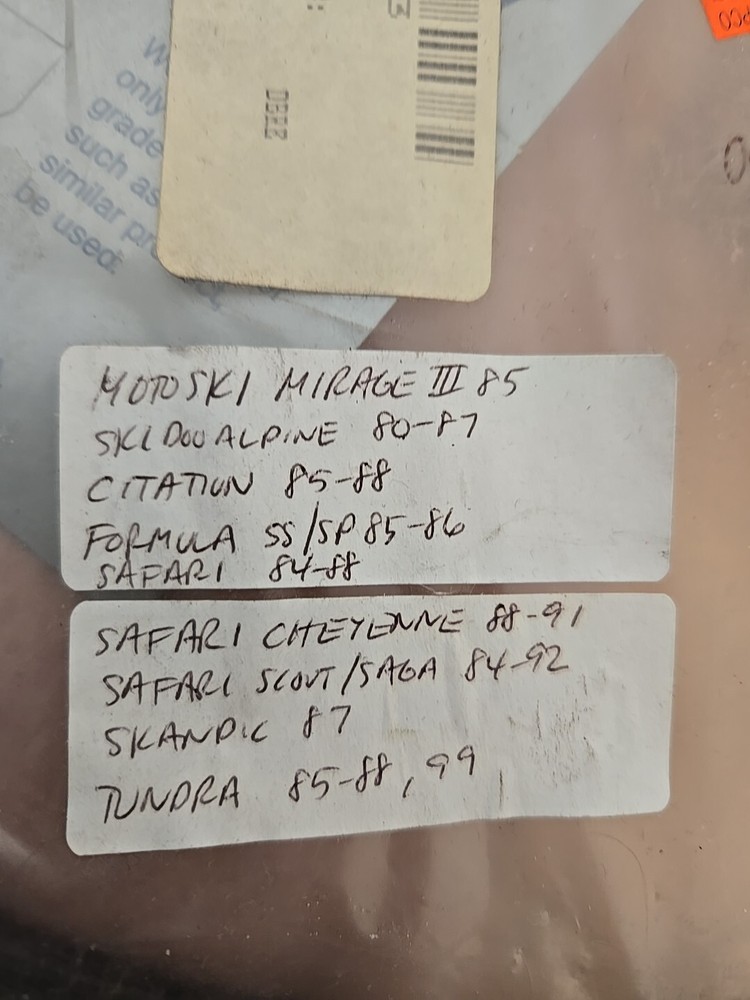 only
grade
such as
similar
be used.
MOTOSKI MIRAGE III 85
SKIDOO ALPINE 80-87
CITATION 85-88
FORMULA SS/SP 85-86
SAFARI 84-88
SAFARI CHEYENNE 88-91
SAFARI SCOUT/SAGA 84-92
SKANDIC 87
TUNDRA 85-88, 99